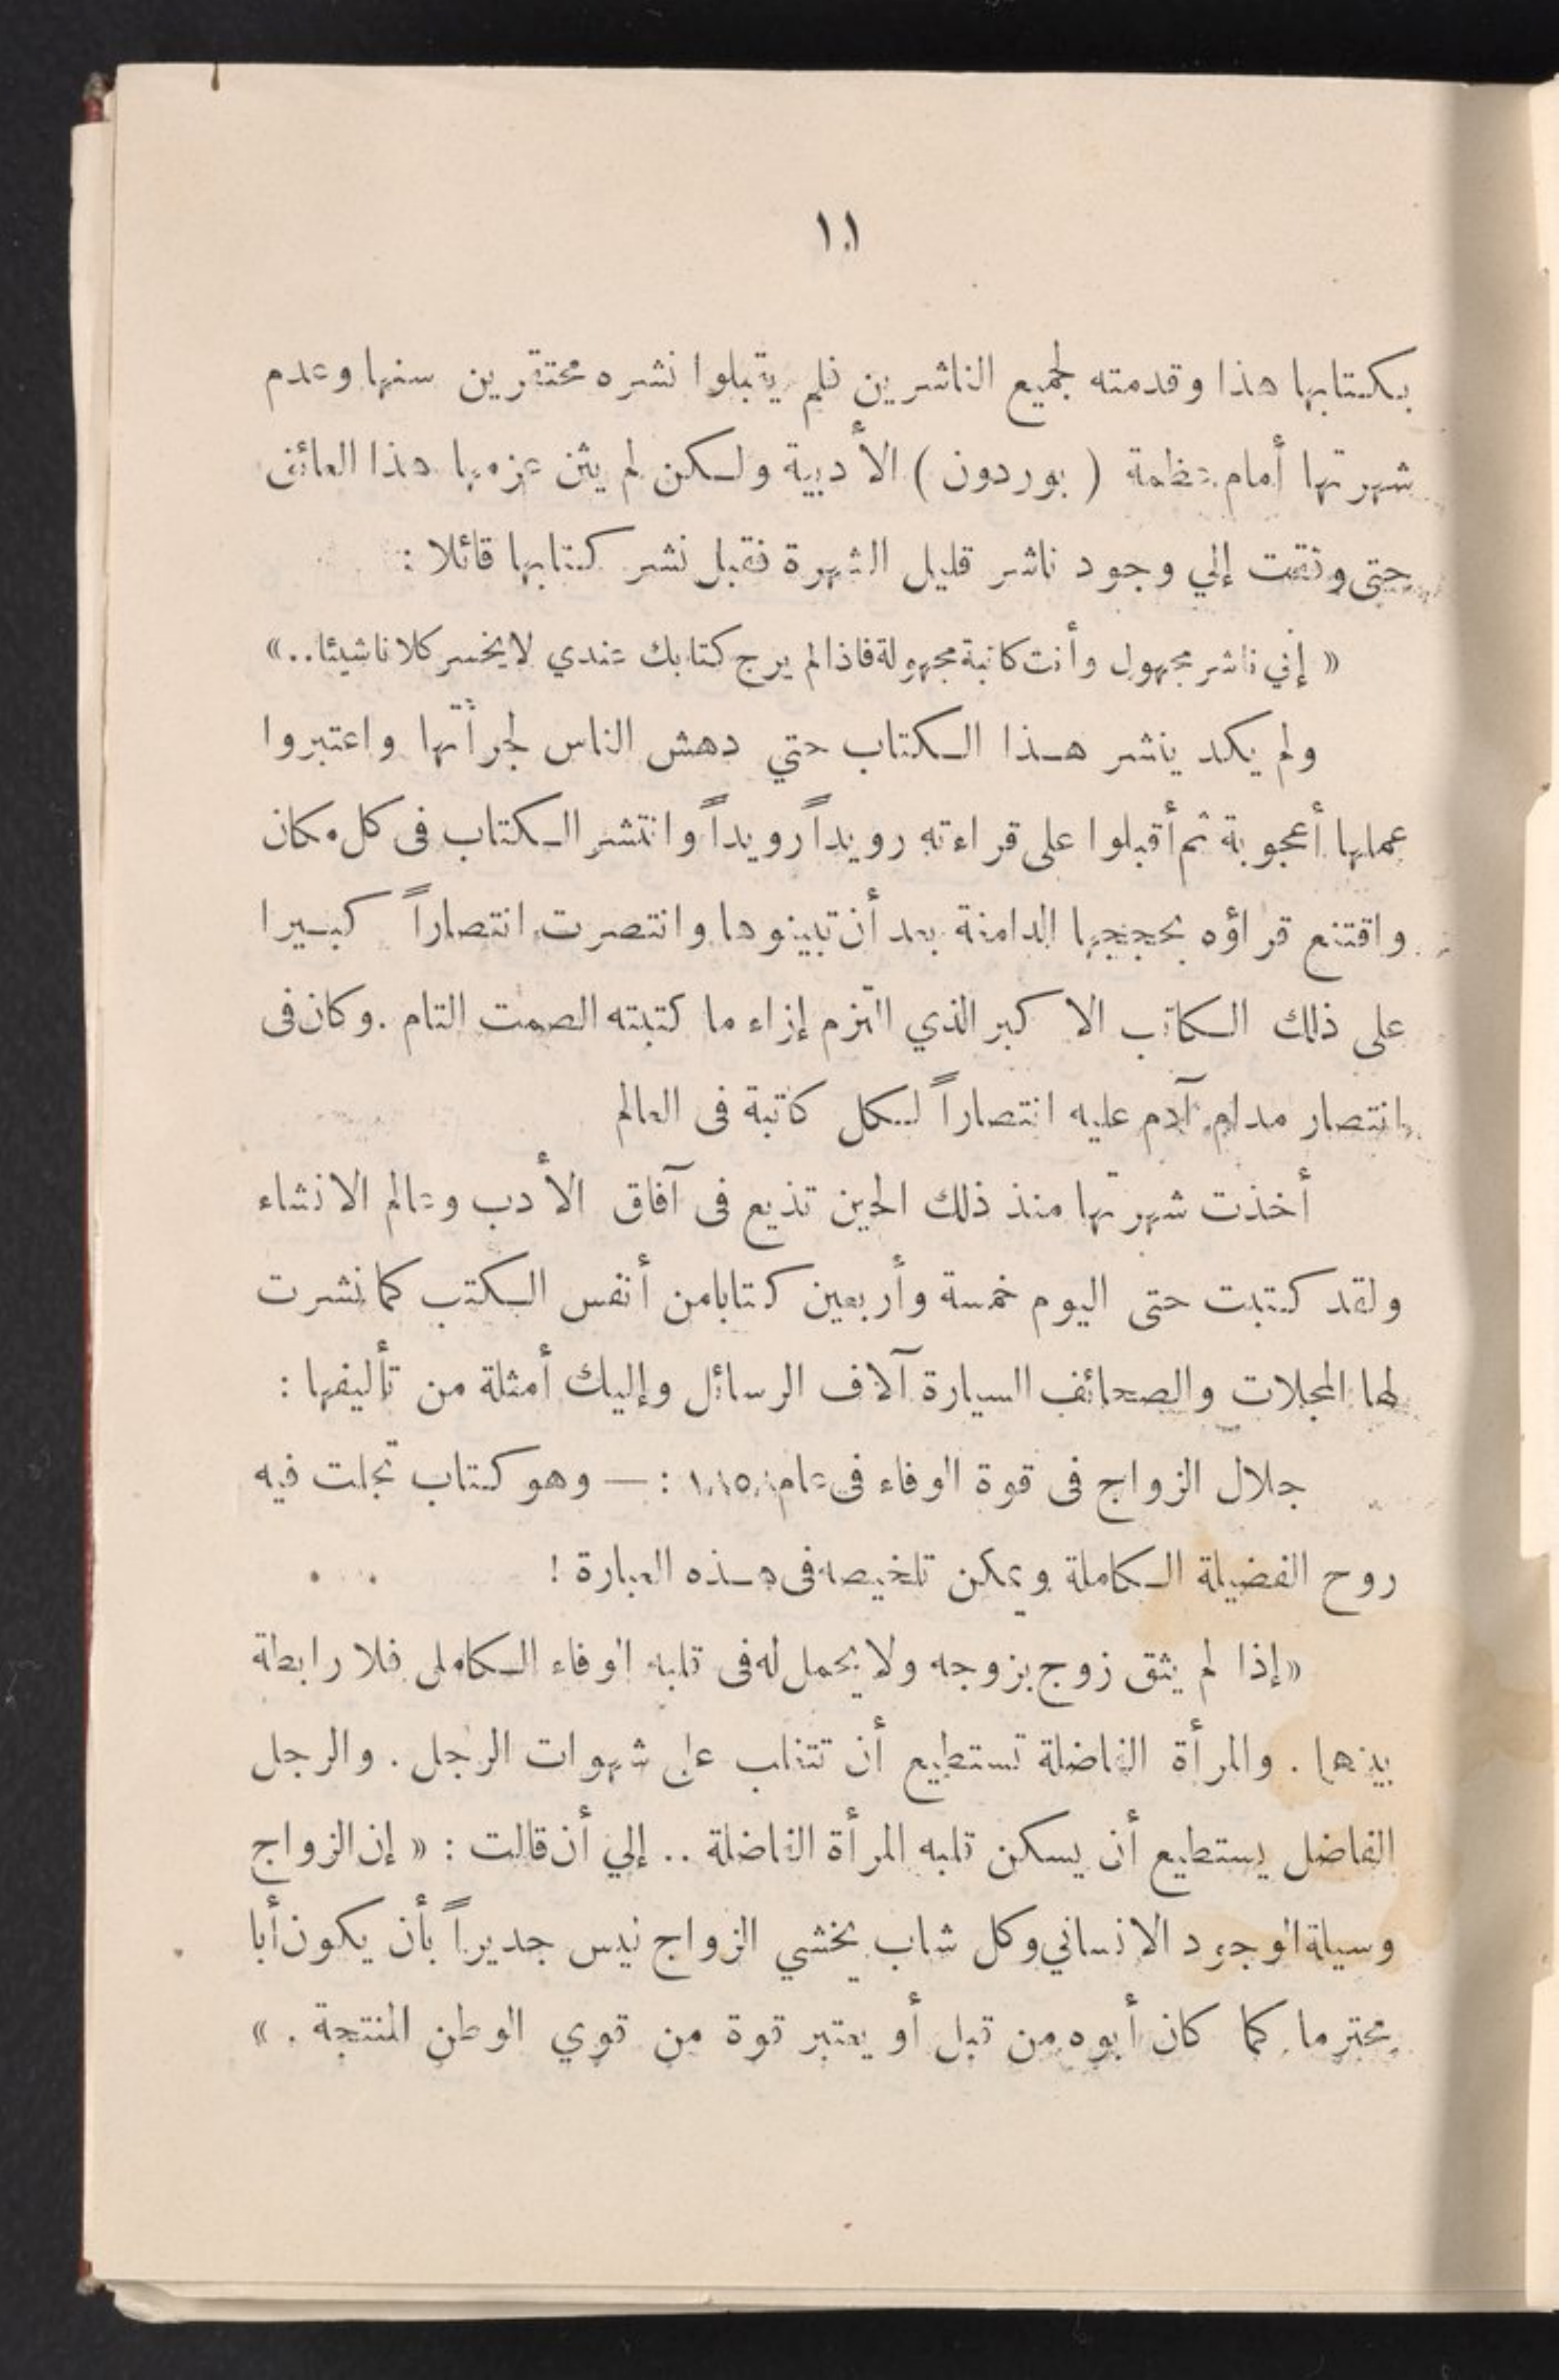 ١٠١
بكتابها هذا وقدمته لجميع الناشرين فلم يقبلوا نشره محتقرين سنها وعدم
شهرتها أمام عظمة ( بوردون ) الأدبية ولكن لم يثن عزمها هذا العائق
حتى وفقت إلي وجود ناشر قليل الشهرة فقبل نشر كتابها قائلا :
« إني ناشر مجهول وأنت كاتبة مجهولة فاذا لم يرج كتابك عندي لا يخسر كلانا شيئا .. »
ولم يكد ينشر هذا الكتاب حتي دهش الناس لجرأتها واعتبروا
عملها أعجوبة ثم أقبلوا على قراءته رويداً رويداً وانتشر الكتاب فى كل مكان
واقتنع قراؤه بحججها الدامغة بعد أن تبينوها وانتصرت انتصاراً كبيرا
على ذلك الكاتب الاكبر الذي التزم إزاء ما كتبته الصمت التام . وكان فى
انتصار مدام آدم عليه انتصاراً لكل كاتبة فى العالم
أخذت شهرتها منذ ذلك الحين تذيع فى آفاق الأدب وعالم الانشاء
ولقد كتبت حتى اليوم خمسة وأربعين كتابا من أنفس الكتب كما نشرت
لها المجلات والصحائف السيارة آلاف الرسائل وإليك أمثلة من تأليفها :
جلال الزواج فى قوة الوفاء فى عام : — وهو كتاب تجلت فيه
روح الفضيلة الكاملة ويمكن تلخيصه فى هذه العبارة !
« إذا لم يثق زوج بزوجه ولا يحمل له فى قلبه الوفاء الكامل فلا رابطة
بينهما . والمرأة الفاضلة تستطيع أن تتغلب على شهوات الرجل . والرجل
الفاضل يستطيع أن يسكن قلبه المرأة الفاضلة .. إلي أن قالت : « إن الزواج
وسيلة الوجود الانساني وكل شاب يخشي الزواج ليس جديراً بأن يكون أبا
محترما كما كان أبوه من قبل أو يعتبر قوة من قوي الوطن المنتجة . »